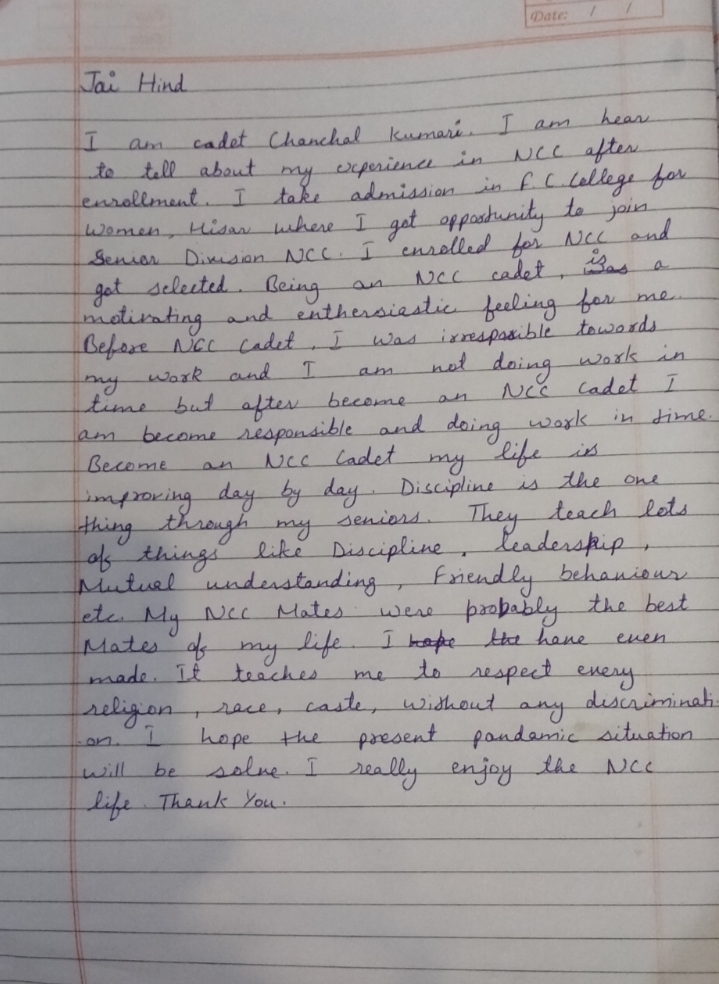 Date: / /
Jai Hind
I am cadet Chanchal Kumari. I am hear
to tell about my experience in NCC after
enrollment. I take admission in F.C College for
Women, Hisar where I got opportunity to join
Senior Division NCC. I enrolled for NCC and
got selected. Being an NCC cadet, is a
motivating and enthersiastic feeling for me.
Before NCC Cadet, I was irresposible towards
my work and I am not doing work in
time but after become an NCC Cadet I
am become responsible and doing work in time.
Become an NCC Cadet my life is
improving day by day. Discipline is the one
thing through my seniors. They teach lots
of things like Discipline, leadership,
Mutual understanding, Friendly behaviour
etc. My NCC Mates were probably the best
Mates of my life. I hope the have even
made. It teaches me to respect every
religion, race, caste, without any discriminati
-on. I hope the present pandamic situation
will be solve. I really enjoy the NCC
life. Thank You.